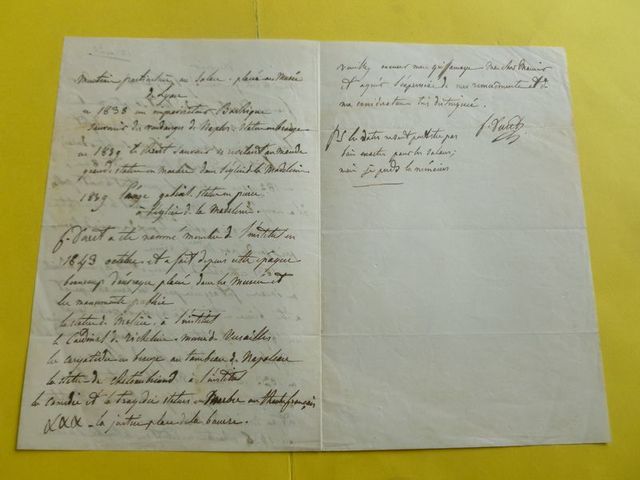 mention particulière au Salon. placée au Musée
de Lyon
en 1838 un improvisateur
souvenir des vendanges de Naples. Statue bronze
en 1839 le Christ
grande statue en marbre dans l'église la Madeleine
1839 l'ange gabriel statue en pierre
à l'église de la Madeleine.
f. Duret a été nommé membre de l'institut en
1843 octobre et a fait depuis cette époque
beaucoup d'ouvrages placés dans les Musées et
les monuments publics
la statue de Molière, à l'institut
le Cardinal de Richelieu. musée de Versailles
les caryatides en bronze au tombeau de Napoléon
la statue de chateaubriand à l'institut
la comédie et la tragédie statues en Marbre au théâtre français
XXX - la justice place de la bourse.
mon cher Monsieur
et agréer l'expression de mes remerciements et de
ma considération très distinguée.
f. Duret
PS les dates ne sont peut être pas
bien exactes pour les salons,
mais je perds la mémoire